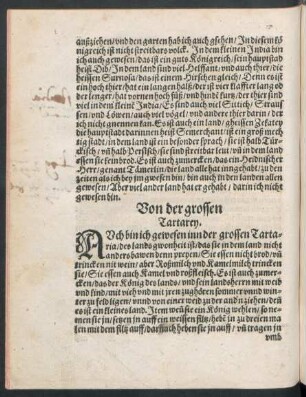 außziehen/vnd den garten hab ich auch gsehen/ In disem kö
nigreich ist nicht streitbars volck. In dem kleinen India bin
ich auch gewesen/das ist ein guts Königreich/ sein hauptstad
heist Dib/ In dem land sind viel Helffant/ vnd auch thier/die
heissen Surnosa/das ist einem Hirschen gleich/ Denn es ist
ein hoch thier/hat ein langen halß/der ist vier klaffter lang o
der lenger/ hat vornen hoch füß/vnd hind kurtz/der thier sind
viel in dem kleine India/Es sind auch viel Sittich/ Strauß
sen/vnd Löwen/auch viel vögel/vnd andere thier darin/ der
ich nicht gnennen kan. Es ist auch ein land/ gheissen Zekatey
die hauptstadt darinnen heist Semerchant/ist ein groß mech
tig stadt/in dem land ist ein besonder sprach/ sie ist halb Tür
ckisch/ vñ halb Persisch/sie sind streitbar leut/vñ in dem land
essen sie kein brod. Es ist auch zumercken/das ein Heidnischer
Herr/genant Tämerlin/der land alle hat inn gehabt/zu den
zeiten als ich bey jm gwesen bin/ bin auch in den landen allen
gewesen/ Aber viel ander land hat er gehabt / darin ich nicht
gewesen bin.
Von der grossen
Tartarey.
AVch bin ich gewesen inn der grossen Tarta
ria/des lands gwonheit ist/das sie in dem land nicht
anders bawen denn prepen/ Sie essen nicht brod/ vñ
trincken nit wein/ aber Roßmilch vnd Kamelmilch trincken
sie/ Sie essen auch Kamel vnd roßfleisch. Es ist auch zumer
cken/das der König des lands/ vnd sein landsherrn mit weib
vnd kind/mit vieh vnd mit jren zugehören sommer vnd win
ter zu feld ligen/ vnnd von einer weid zu der andn ziehen/ denn
es ist ein kleines land. Item weñ sie ein König wehlen/ so ne
men sie jn/setzen jn auff ein weissen filtz/ hebt in zu dreien ma
len mit dem filtz auff/ darnach heben sie jn auff / vñ tragen jn
vmb